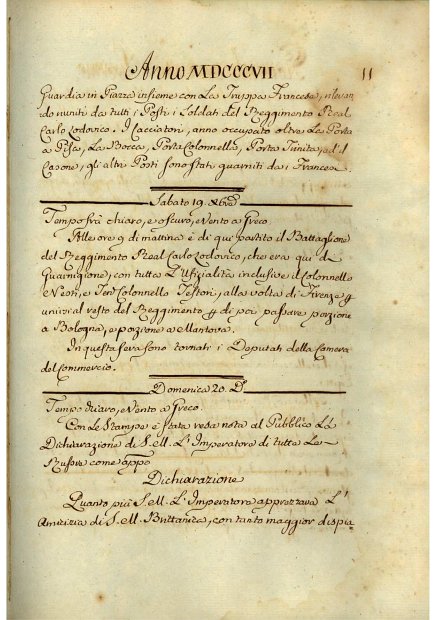 Anno MDCCCVII 11
Guardia in Piazza insieme con La Truppa Francese, rilevan
do muniti da tutti i Posti i Soldati del Reggimento Real
Carlo Lodovico. I Cacciatori, anno occupato oltre La Porta
a Pisa, La Bocca, Porta Colonnella, Porta Tinita, ed il
Casone, gli altri Posti sono stati guarniti da i Francesi
Sabato 19. Xbre
Tempo frà chiaro, e oscuro, e Vento a Greco.
Alle ore 9 di mattina è di qui partito il Battaglione
del Reggimento Real Carlo Lodovico, che era quì di
Guarnigione, con tutta L'Ufizialità inclusive il Colonnello
e Ten. Colonnello Testori, alla volta di Firenze p
unirsi al resto del Reggimento p di poi passare porzione
a Bologna, e porzione a Mantova.
In questa sera sono tornati i Deputati della Camera
del Commercio.
Domenica 20. Do
Tempo chiaro, e Vento a Greco.
Con Le Stampe è stata resa nota al Pubblico La
Dichiarazione di S. M. L'Imperatore di tutte Le
Russie come appo
Dichiarazione
Quanto più S. M. L'Imperatore apprezzava L'
Amicizia di S. M. Brittanica, con tanto maggior dispia